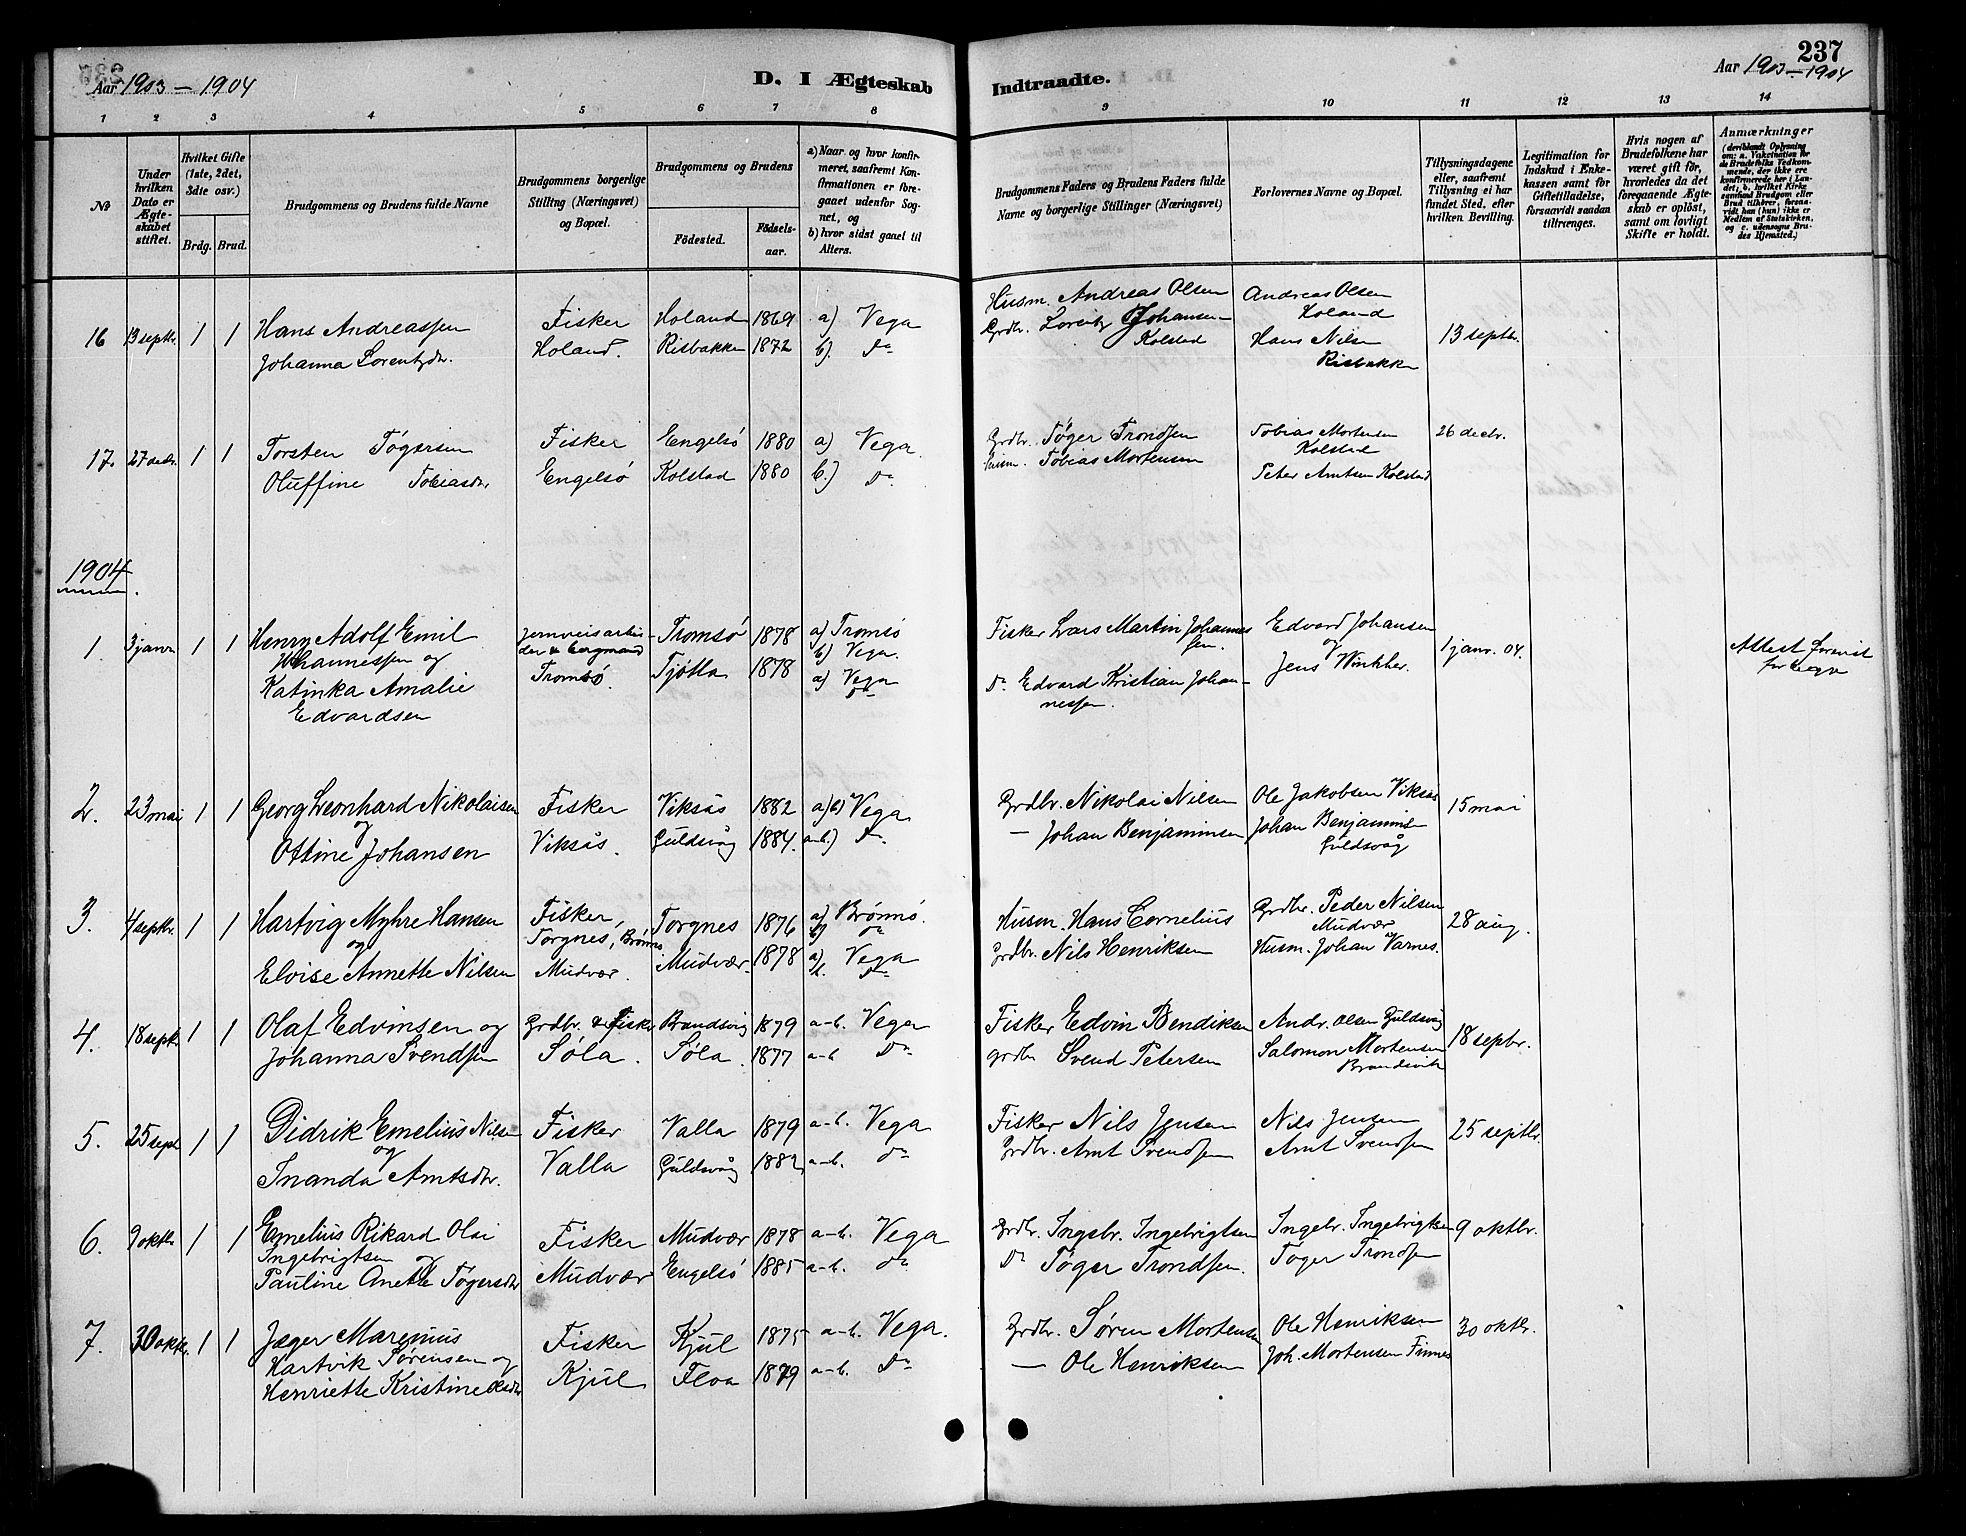 Aar 1903 – 1904
D. I Ægteskab
Indtraadte.
Aar 1903 – 1904
237
1 2 3 4 5 6 7 8 9 10 11 12 13 14
No
Under hvilken Dato er Ægteskabet stiftet.
Hvilket Gifte (1ste, 2det, 3die osv.)
Brdg. Brud.
Brudgommens og Brudens fulde Navne
Brudgommens borgerlige Stilling (Næringsvei) og Bopæl.
Brudgommens og Brudens
Födested. Födsels-aar.
a) Naar og hvor konfirmeret, saafremt Konfirmationen er foregaaet udenfor Sognet, og
b) hvor sidst gaaet til Alters.
Brudgommens Faders og Brudens Faders fulde Navne og borgerlige Stillinger (Næringsvei)
Forlovernes Navne og Bopæl.
Tillysningsdagene eller, saafremt Tillysning ei har fundet Sted, efter hvilken Bevilling.
Legitimation for Indskud i Enkekassen samt for Giftetilladelse, forsaavidt saadan tiltrænges.
Hvis nogen af Brudefolkene har været gift för, hvorledes da det foregaaende Ægteskab er oplöst, samt om lovligt Skifte er holdt.
Anmærkninger
(deriblandt Oplysning om: a. Vaksination for de Brudefolks Vedkommende, der ikke ere konfirmerede her i Landet, b. hvilket Kirkesamfund Brudgom eller Brud tilhörer, forsaavidt han (hun) ikke er Medlem af Statskirken, og c. udensogns Brudes Hjemsted.)
16 13 septbr. 1 1 Hans Andreassen Fisker Holand 1869 a) Vega Husm. Andreas Olsen Andreas Olsen Holand 13 septbr.
Johanna Lorentzdtr. Holand. Risbakken 1872 b). do Grdbr. Lorentz Johansen Kolstad Hans Nilsen Risbakken
17. 27 decbr. 1 1 Torsten Tøgersen Fisker Engelsø 1880 a) Vega Grdbr. Tøger Trondsen Tobias Mortensen Kolstad 26 decbr.
Oluffine Tobiasdtr Engelsø Kolstad 1880 b.) do Husm. Tobias Mortensen Peter Arntsen Kolstad
1904
1. 3 janr. 1 1 Henry Adolf Emil Jernveisarbeider & bergmand Tromsø 1878 a) Tromsø Fisker Lars Martin Johannessen Edvard Johansen 1 janr. 04.
Johannessen og b) Vega. og Attest
Katinka Amalie Tromsø. Tjøtta 1878 a) Vega do Edvard Kristian Johannessen. Jens
Edvardsen do
2. 23 mai 1 1 Georg Leonhard Nikolaisen Fisker Viksås 1882 a) b) Vega Grdbr. Nikolai Nilsen Ole Jakobsen Viksås 15 mai
og
Ottine Johansen Viksås. Guldsvåg 1884. a-b.) do — Johan Benjaminsen Johan Benjaminsen Guldsvåg
3. 4 septbr. 1 1 Hartvig Myhre Hansen Fisker, Torgnes 1876 a) Brønnø. Husm. Hans Cornelius Grdbr. Peder Nilsen Mudvær 28 aug.
og Torgnes, Brønnø b) do
Elvise Annette Nilsen Mudvær. Mudvær. 1878 a) Vega Grdbr. Nils Henriksen Husm. Johan Varnes.
b. do
4. 18 septbr. 1 1 Olaf Edvinsen og Grdbr. & Fisker Brandsvig 1879 a-b. Vega Fisker Edvin Bendiksen Andr. Olsen Guldsvåg 18 septbr.
Johanna Svendsen Søla. Søla. 1877 a-b do grdbr Svend Petersen Salomon Mortensen Brandsvik
5. 25 sept 1 1 Didrik Emelius Nilsen Fisker Valla 1879 a-b. Vega Fisker Nils Jensen Nils Jensen 25 septbr.
og
Inanda Arntsdtr. Valla Guldsvåg 1882 a-b. do Grdbr. Arnt Svendsen Arnt Svendsen
6. 9 oktbr 1 1 Emelius Rikard Olai Fisker Mudvær 1878 a-b. Vega Grdbr. Ingebr. Ingebrigtsen Ingebr. Ingebrigtsen 9 oktbr.
Ingebrigtsen og
Pauline Anette Tøgersdtr Mudvær Engelsø 1885 a-b. do do Tøger Trondsen. Tøger Trondsen
7. 30 oktbr. 1 1 Jæger Marenius Fisker Kjul 1875 a-b. Vega. Grdbr. Søren Mortensen Ole Henriksen 30 oktbr.
Hartvik Sørensen og
Henriette Kristine Olsdtr Kjul Floa 1879 a-b. do — Ole Henriksen Joh. Mortensen Finnes